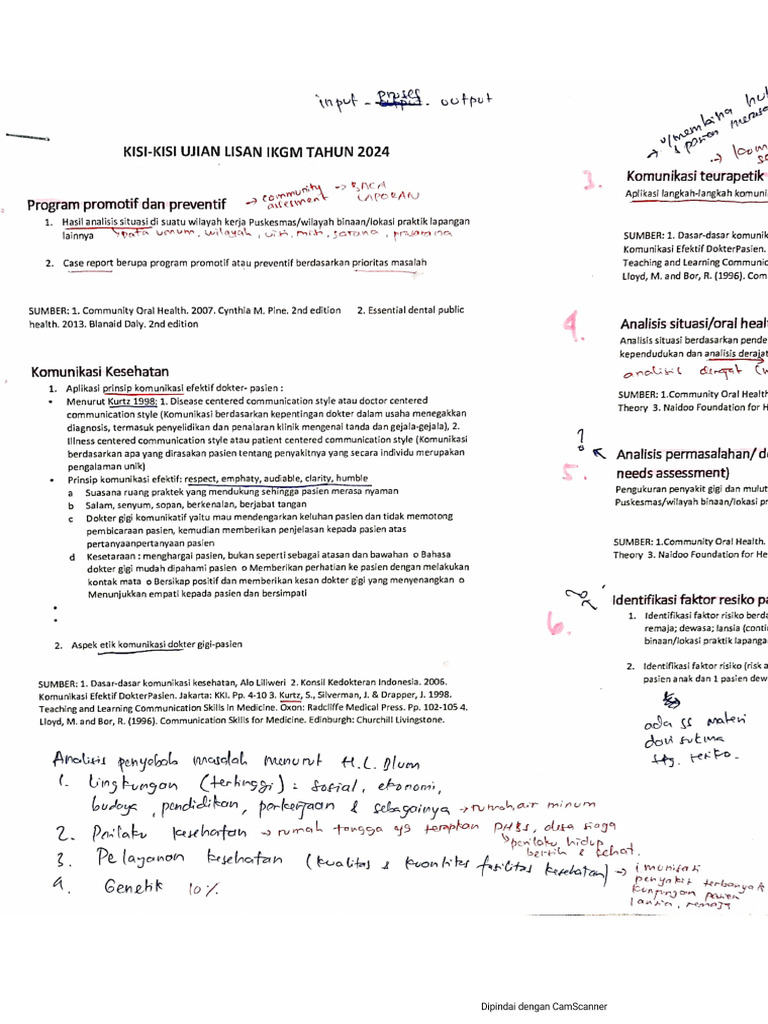 input - proses - output
KISI-KISI UJIAN LISAN IKGM TAHUN 2024
Program promotif dan preventif → community assesment → BACA LAPORAN
1. Hasil analisis situasi di suatu wilayah kerja Puskesmas/wilayah binaan/lokasi praktik lapangan
lainnya data umum, wilayah, visi, misi, sarana, prasarana
2. Case report berupa program promotif atau preventif berdasarkan prioritas masalah
SUMBER: 1. Community Oral Health. 2007. Cynthia M. Pine. 2nd edition 2. Essential dental public
health. 2013. Blanaid Daly. 2nd edition
Komunikasi Kesehatan
1. Aplikasi prinsip komunikasi efektif dokter- pasien :
• Menurut Kurtz 1998: 1. Disease centered communication style atau doctor centered
communication style (Komunikasi berdasarkan kepentingan dokter dalam usaha menegakkan
diagnosis, termasuk penyelidikan dan penalaran klinik mengenai tanda dan gejala-gejala), 2.
Illness centered communication style atau patient centered communication style (Komunikasi
berdasarkan apa yang dirasakan pasien tentang penyakitnya yang secara individu merupakan
pengalaman unik)
• Prinsip komunikasi efektif: respect, emphaty, audiable, clarity, humble
a Suasana ruang praktek yang mendukung sehingga pasien merasa nyaman
b Salam, senyum, sopan, berkenalan, berjabat tangan
c Dokter gigi komunikatif yaitu mau mendengarkan keluhan pasien dan tidak memotong
pembicaraan pasien, kemudian memberikan penjelasan kepada pasien atas
pertanyaanpertanyaan pasien
d Kesetaraan : menghargai pasien, bukan seperti sebagai atasan dan bawahan o Bahasa
dokter gigi mudah dipahami pasien o Memberikan perhatian ke pasien dengan melakukan
kontak mata o Bersikap positif dan memberikan kesan dokter gigi yang menyenangkan o
Menunjukkan empati kepada pasien dan bersimpati
•
•
2. Aspek etik komunikasi dokter gigi-pasien
SUMBER: 1. Dasar-dasar komunikasi kesehatan, Alo Liliweri 2. Konsil Kedokteran Indonesia. 2006.
Komunikasi Efektif DokterPasien. Jakarta: KKI. Pp. 4-10 3. Kurtz, S., Silverman, J. & Drapper, J. 1998.
Teaching and Learning Communication Skills in Medicine. Oxon: Radcliffe Medical Press. Pp. 102-105 4.
Lloyd, M. and Bor, R. (1996). Communication Skills for Medicine. Edinburgh: Churchill Livingstone.
Analisis penyebab masalah menurut H.L. Blum
1. Lingkungan (tertinggi) : sosial, ekonomi,
budaya, pendidikan, perkerjaan & sebagainya → rumah air minum
2. Perilaku kesehatan → rumah tangga yg terapkan PHBS, desa siaga
perilaku hidup
bersih & sehat.
3. Pelayanan kesehatan (kualitas & kuantitas fasilitas kesehatan) → imunisasi
penyakit terbanyak
kunjungan pasien
lansia, remaja
4. Genetik 10%
→ u/ membina hu
& pasien merasa
3. Komunikasi teurapetik
Aplikasi langkah-langkah komuni
SUMBER: 1. Dasar-dasar komunik
Komunikasi Efektif DokterPasien.
Teaching and Learning Communic
Lloyd, M. and Bor, R. (1996). Com
4. Analisis situasi/oral healt
Analisis situasi berdasarkan pende
kependudukan dan analisis derajat
analisis derajat
SUMBER: 1.Community Oral Health
Theory 3. Naidoo Foundation for H
?
5. Analisis permasalahan/ de
needs assessment)
Pengukuran penyakit gigi dan mulut
Puskesmas/wilayah binaan/lokasi pr
SUMBER: 1.Community Oral Health.
Theory 3. Naidoo Foundation for He
6. Identifikasi faktor resiko pa
1. Identifikasi faktor risiko berda
remaja; dewasa; lansia (contin
binaan/lokasi praktik lapanga
2. Identifikasi faktor risiko (risk a
pasien anak dan 1 pasien dew
ada ss materi
dari sukma
ttg. resiko.
Dipindai dengan CamScanner